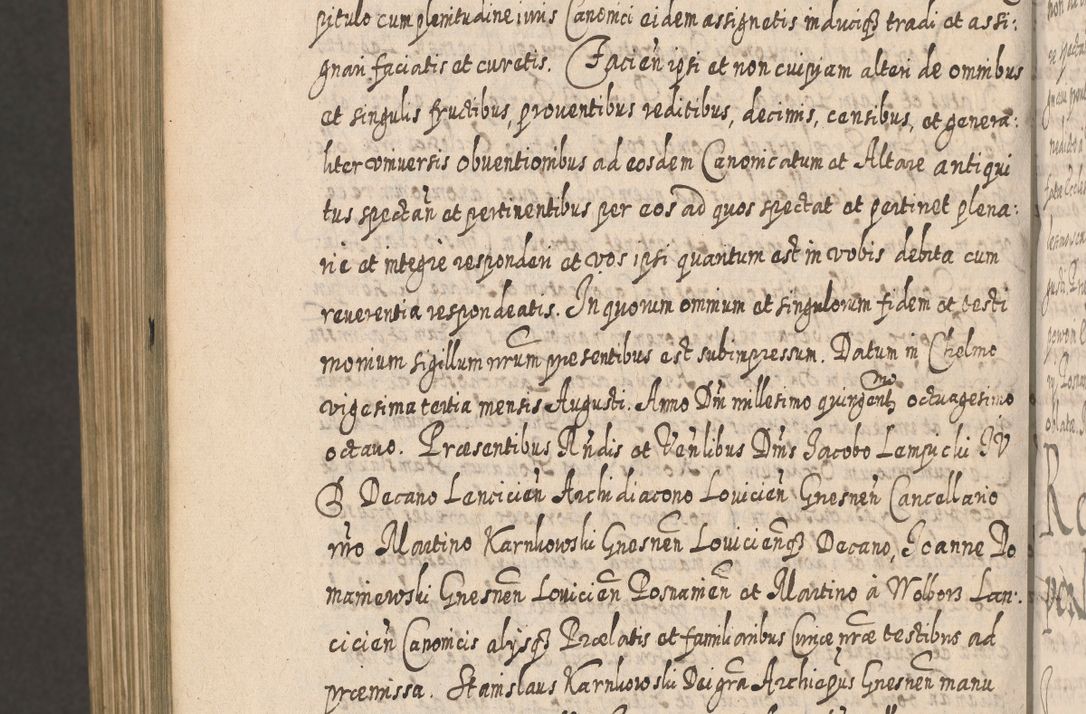 pitulo cum plenitudine iuris Canonici eidem assignetis induciq3 tradi et assi:
gnari faciatis et curetis. Facień ipsi et non cuipiam alteri de omnibus
et singulis fructibus, proventibus reditibus, decimis, censibus, et genera:
liter vniuersis obuentionibus ad eosdem Canonicatum et Altare antiqui
tus spectań et pertinentibus per eos ad quos spectat et pertinet plena:
rie et integre responderi et vos ipsi quantum est in vobis debita cum
reuerentia respondeatis. In quorum omnium et singulorum fidem et testi
monium sigillum nrum presentibus est subimpressum. Datum in Chelmo
vigesima tertia mensis Augusti. Anno Dni millesimo quingentmo octuagesimo
octauo. Præsentibus Rndis et Venlibus Dnis Jacobo Lempicki IV
D Decano Lancicień Archidiacono Lovicień Gnesneń Cancellario
nro Martino Karnkowski Gnesnen Loviciēnq3 Decano, Joanne Do
maniewski Gnesnen Lovicien Posnanien et Martino à Wolborz Lan:
cicień Canonicis alijsq3 Prælatis et familiaribus Curiæ nræ testibus ad
præmissa. Stanislaus Karnkowski Dei gra Archiepus Gnesnen manu